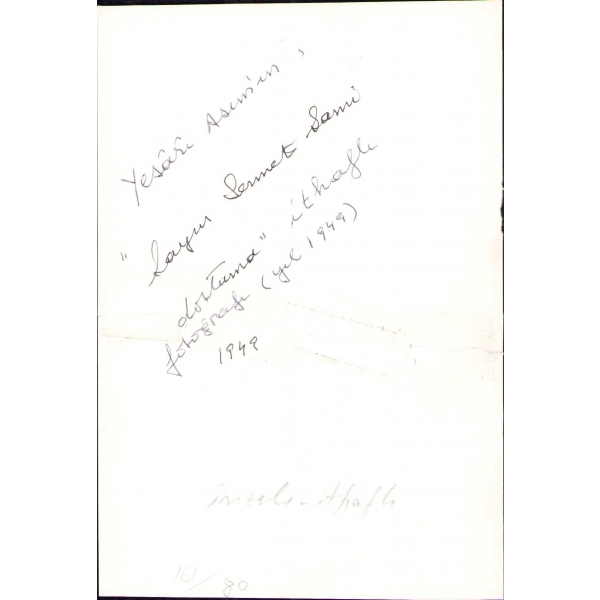 Yesâri Asım'ın,
"Sayın Sermet Sami
dostuma" ithaflı
fotoğrafı (yıl 1949)
1949
imzalı-ithaflı
161/80